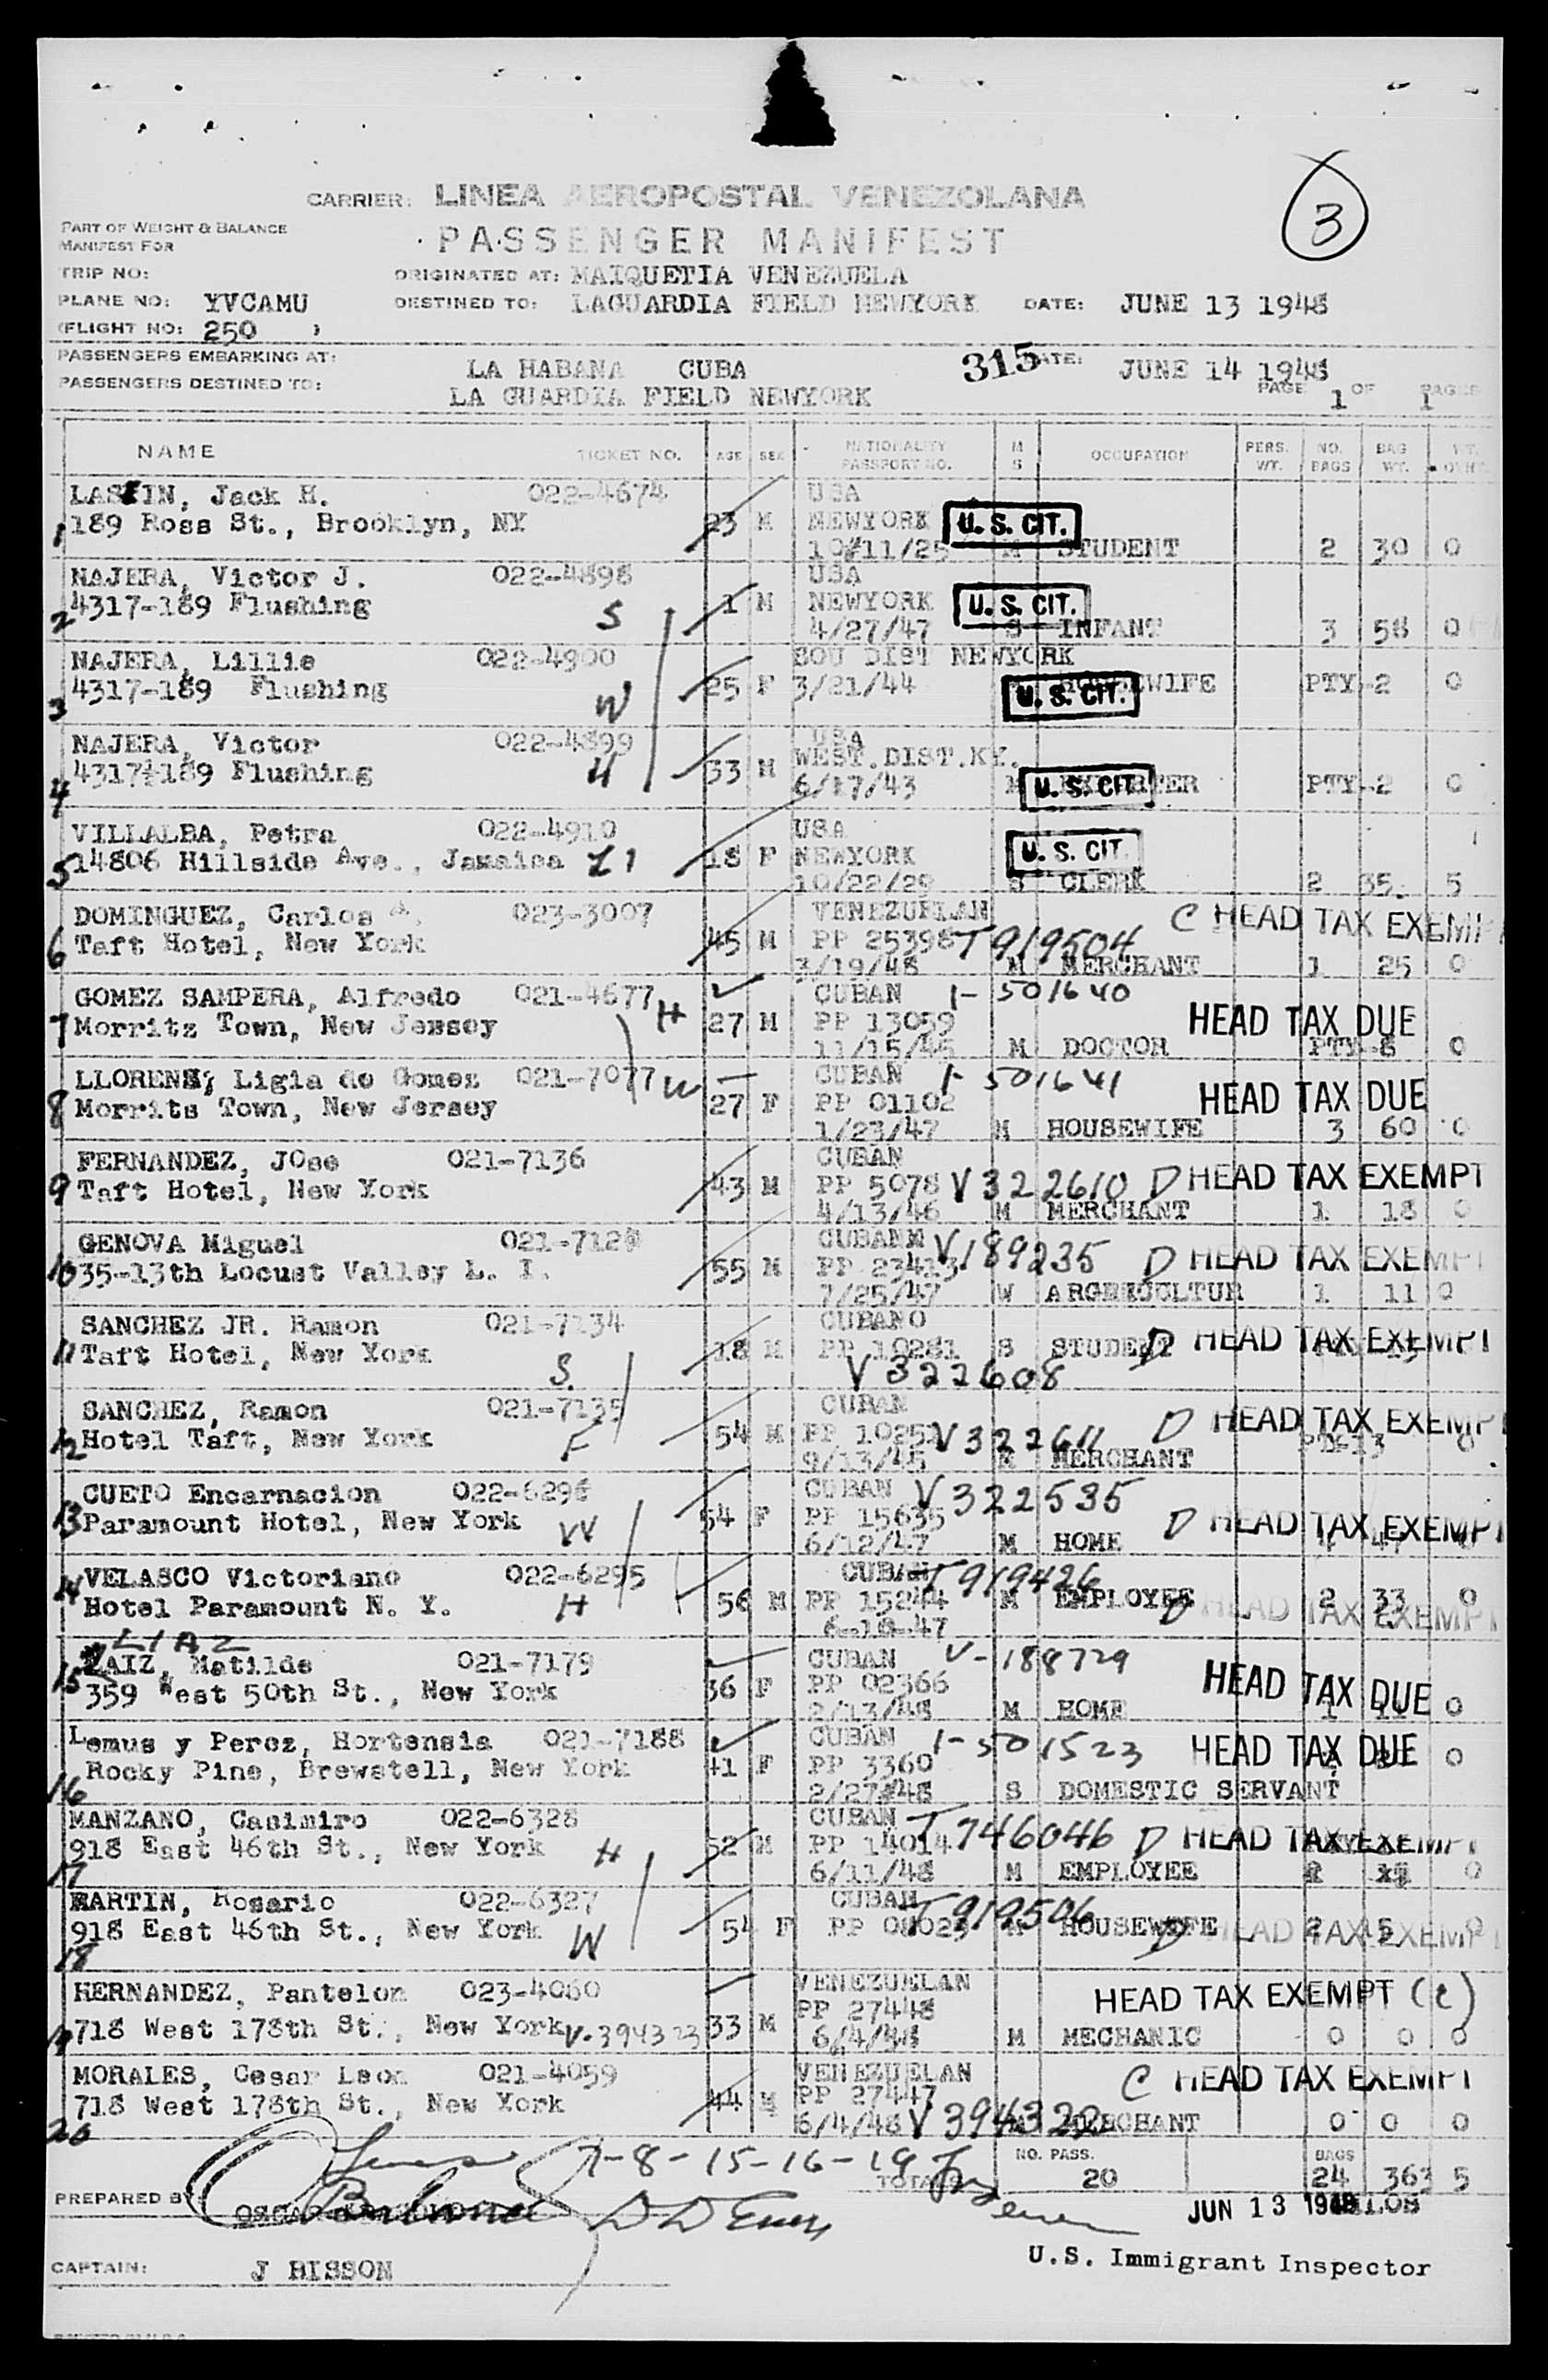 3
CARRIER: LINEA AEROPOSTAL VENEZOLANA
PART OF WEIGHT & BALANCE
MANIFEST FOR
PASSENGER MANIFEST
TRIP NO:
ORIGINATED AT: MAIQUETIA VENEZUELA
PLANE NO: YVCAMU
DESTINED TO: LAGUARDIA FIELD NEWYORK DATE: JUNE 13 1948
(FLIGHT NO: 250 )
PASSENGERS EMBARKING AT: LA HABANA CUBA 315 DATE: JUNE 14 1948
PASSENGERS DESTINED TO: LA GUARDIA FIELD NEWYORK PAGE 1 OF 1 PAGES
NAME TICKET NO. AGE SEX NATIONALITY PASSPORT NO. M S OCCUPATION PERS. WT. NO. BAGS BAG WT.
022-4674 USA
1 189 Ross St., Brooklyn, NY 23 M NEWYORK U. S. CIT.
10/11/25 M STUDENT 2 30 0
NAJERA, Victor J. 022-4898 USA
2 4317-189 Flushing S 1 M NEWYORK U. S. CIT.
4/27/47 S INFANT 3 58 0
NAJERA, Lillie 022-4900 SOU DIST NEWYORK
3 4317-189 Flushing W 25 F 3/21/44 U. S. CIT. PTY-2 0
NAJERA, Victor 022-4899 USA
4 4317-189 Flushing H 33 M WEST.DIST.KY.
6/17/43 M U. S. CIT. PTY-2 0
VILLALBA, Petra 022-4910 USA
5 14806 Hillside Ave., Jamaica LI 18 F NEWYORK U. S. CIT.
10/22/29 S CLERK 2 35 5
DOMINGUEZ, Carlos A. 023-3007 VENEZUELAN C HEAD TAX EXEMPT
6 Taft Hotel, New York 45 M PP 25398 T 919504
3/19/48 M MERCHANT 1 25 0
GOMEZ SAMPERA, Alfredo 021-4677 H CUBAN I-501640
7 Morritz Town, New Jersey 27 M PP 13059 HEAD TAX DUE
11/15/45 M DOCTOR PTY-8 0
LLORENS, Ligia de Gomez 021-7077 W CUBAN I-501641
8 Morrits Town, New Jersey 27 F PP 01102 HEAD TAX DUE
1/23/47 M HOUSEWIFE 3 60 0
FERNANDEZ, JOse 021-7136 CUBAN
9 Taft Hotel, New York 43 M PP 5078 V 322610 D HEAD TAX EXEMPT
4/13/46 M MERCHANT 1 18 0
GENOVA Miguel V189235 D HEAD TAX EXEMPT
10 35-13th Locust Valley L. I. 55 M PP 23413
7/25/47 W 1 11 0
SANCHEZ JR. Ramon 021-7134 CUBANO
11 Taft Hotel, New York S. 18 M PP 10281 S STUDENT D HEAD TAX EXEMPT
V 322608
SANCHEZ, Ramon 021-7135 CUBAN D HEAD TAX EXEMPT
12 Hotel Taft, New York F 54 M PP 10251 V322611
9/13/45 MERCHANT 0
CUETO Encarnacion 022-6296 CUBAN V 322535
13 Paramount Hotel, New York W 54 F PP 15635 D HEAD TAX EXEMPT
6/12/47 M HOME
VELASCO Victoriano 022-6295 CUBAN T919426
14 Hotel Paramount N. Y. H 56 M PP 15244 M EMPLOYEE 2 33 0
6-18-47 D HEAD TAX EXEMPT
LIAZ
LAIZ, Matilde 021-7179 CUBAN V-188729
15 359 West 50th St., New York 36 F PP 02366 HEAD TAX DUE
2/13/48 M HOME 0
Lemus y Perez, Hortensia 021-7188 CUBAN I-501523 HEAD TAX DUE
16 Rocky Pine, Brewstell, New York 41 F PP 3360 0
2/27/48 S DOMESTIC SERVANT
MANZANO, Casimiro 022-6328 CUBAN T746046 D HEAD TAX EXEMPT
17 918 East 46th St., New York H 52 M PP 14014
6/11/48 M EMPLOYEE 0
MARTIN, Rosario 022-6327 CUBAN T919506
18 918 East 46th St., New York W 54 F HOUSEWIFE D HEAD TAX EXEMPT
HERNANDEZ, Pantelon 023-4060 VENEZUELAN HEAD TAX EXEMPT (c)
19 718 West 178th St., New York V-394323 33 M PP 27448
6/4/48 M MECHANIC 0 0 0
MORALES, Cesar Leon 021-4059 VENEZUELAN C HEAD TAX EXEMPT
20 718 West 178th St., New York 44 M PP 27447
6/4/48 V 394322 MERCHANT 0 0 0
7-8-15-16-19
TOTALS NO. PASS. 20 BAGS 24 363 5
PREPARED BY
JUN 13 1948
CAPTAIN: J BISSON
U.S. Immigrant Inspector